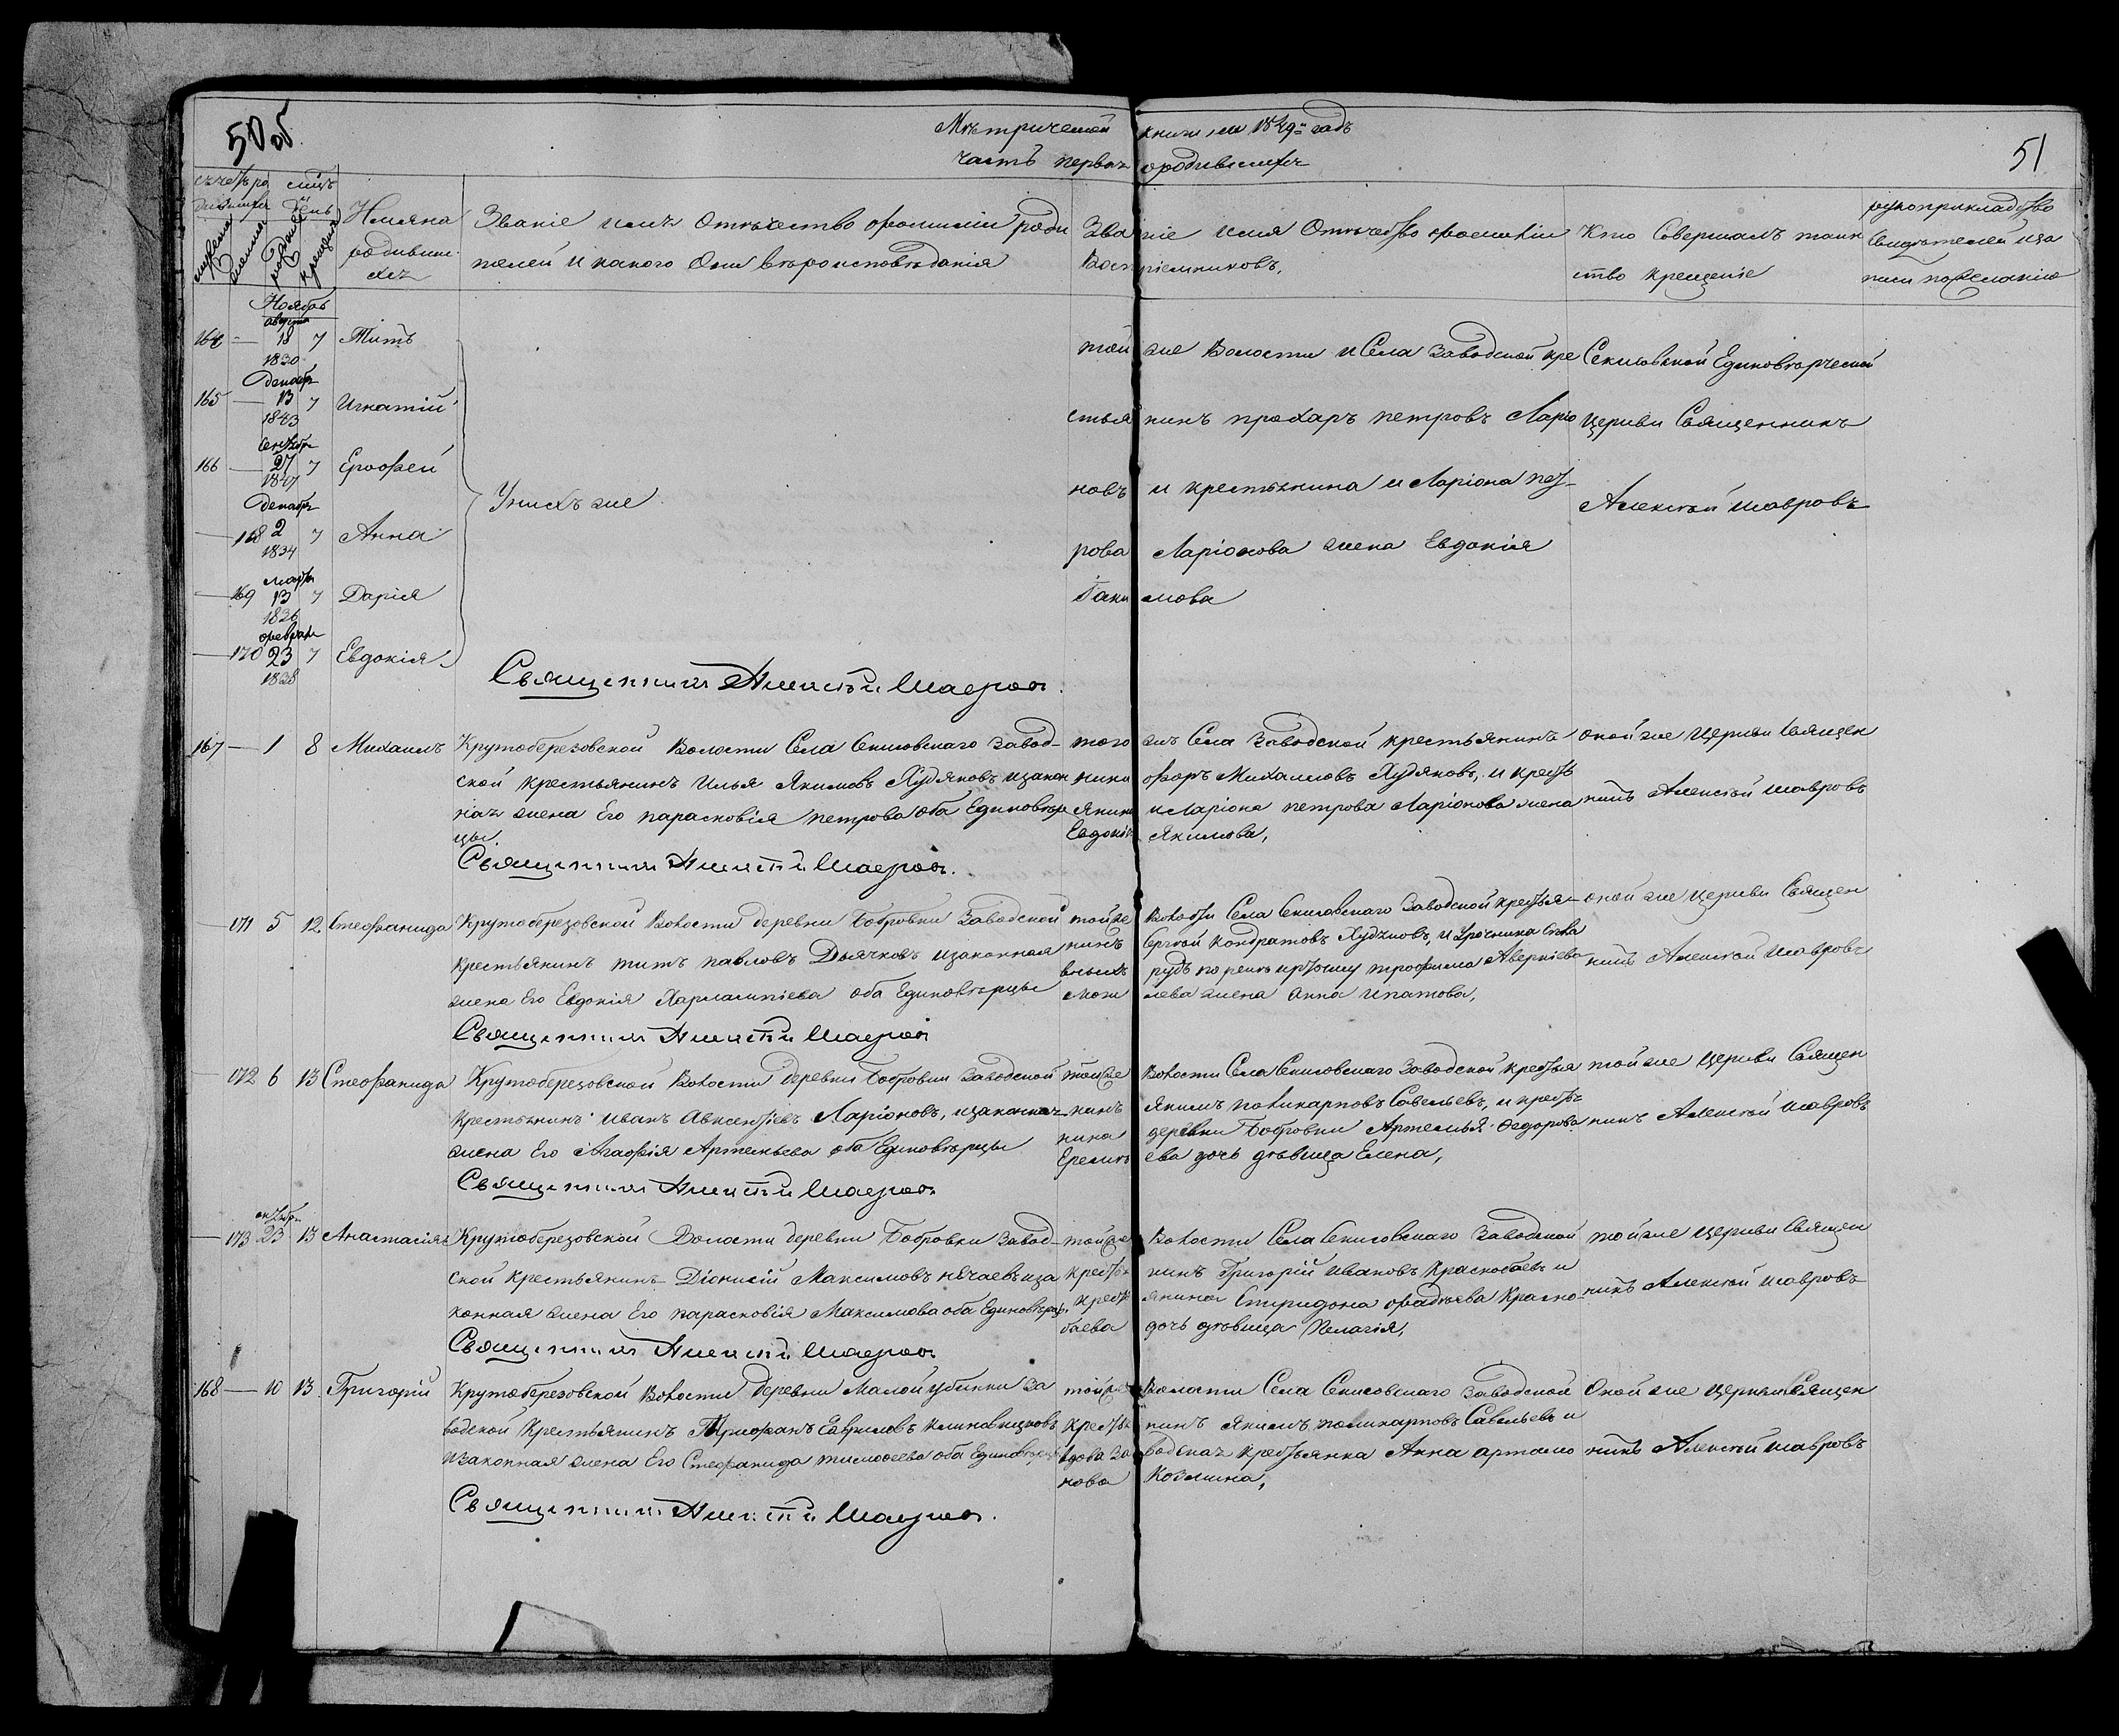 50 об.
Метрической книги на 1849й годъ
51
часть первая о родившихся
счетъ ро
дившихся
мужеска
женска
мѣсяцъ
и день
рожденія
крещенія
Имяна
родивши
хся
Званіе имя Отчество и фамилія роди
телей и какого Они вѣроисповѣданія
Званіе имя Отчество фамилія
Воспріемниковъ,
Кто Совершалъ таин
ство крещеніе
рукоприкладство
Свидѣтелей за
писи по желанію
Ноябрь
августа
164 — 18 7 Титъ
1830
Декабр
165 — 13 7 Игнатій
1843
Сентябр
166 — 27 7 Ерофей
1847
Декабр
— 168 2 7 Анна
1834
марта
— 169 13 7 Дарія
1836
февраля
— 170 23 7 Евдокія
1838
У нихъ же
Священникъ Алексѣй Шавровъ.
той же Волости и Села Заводской кре
стьянинъ прохаръ петровъ Ларіо
новъ и крестьянина и Ларіона пет
рова Ларіонова жена Евдокія
Іакимова
Секисовской Единовѣрческой
Церкви Священникъ
Алексѣй шавровъ
167 — 1 8 Михаилъ
Крутоберезовской Волости Села Секисовскаго завод
ской крестьянинъ Илья Якимовъ Худяковъ и закон
ная жена Его парасковія петрова оба Единовѣр
цы.
Священникъ Алексѣй Шавровъ.
того жъ Села Заводской крестьянинъ
форъ Михаиловъ Худяковъ, и кресть
янина Ларіона петрова Ларіонова жена
Евдокія Якимова,
оной же Церкви Священ
никъ Алексѣй шавровъ
— 171 5 12 Стефанида
Крутоберезовской Волости деревни Бобровки Заводской
крестьянинъ титъ павловъ Дьячковъ и законная
жена Его Евдокія Харлампіева оба Единовѣрцы
Священникъ Алексѣй Шавровъ
той же Волости Села Секисовскаго Заводской крестья
нинъ Сергѣй кондратовъ Худяковъ, и Урочника
рудъ по рекѣ иртышу трофима Аверкіева
жена Анна ипатова,
оной же церкви Священ
никъ Алексѣй шавровъ
— 172 6 13 Стефанида
Крутоберезовской Волости деревни Бобровки Заводской
крестьянинъ иванъ Авксентіевъ Ларіоновъ, и законная
жена Его Агафія Артемьева оба Единовѣрцы
Священникъ Алексѣй Шавровъ
той же Волости Села Секисовскаго Заводской крестья
нинъ Якимъ поликарповъ Савельевъ, и кресть
нина деревни Бобровки Артемья Федорова
Еремѣева дочь дѣвица Елена,
той же Церкви Священ
никъ Алексѣй шавровъ
октябр.
— 173 23 13 Анастасія
Крутоберезовской Волости деревни Бобровки Завод
ской крестьянинъ Діонисій Максимовъ нечаевъ и за
конная жена Его парасковія Максимова оба Единовѣрц.
Священникъ Алексѣй Шавровъ
той же Волости Села Секисовскаго Заводской
крестьянинъ Григорій ивановъ Краснобаевъ и
крестьянина Спиридона фадѣева Красно
баева дочь дѣвица Пелагія,
той же Церкви Священ
никъ Алексѣй шавровъ
168 — 10 13 Григорій
Крутоберезовской Волости деревни Малой убинки За
водской Крестьянинъ Трифанъ Гавриловъ Клиновицковъ
и законная жена Его Стефанида тимофеева оба Единовѣрцы
Священникъ Алексѣй Шавровъ.
той же Волости Села Секисовскаго Заводской
крестьянинъ якимъ поликарповъ Савельевъ и
вдова Заводская крестьянка Анна артамо
нова Козмина,
Оной же церкви Священ
никъ Алексѣй шавровъ